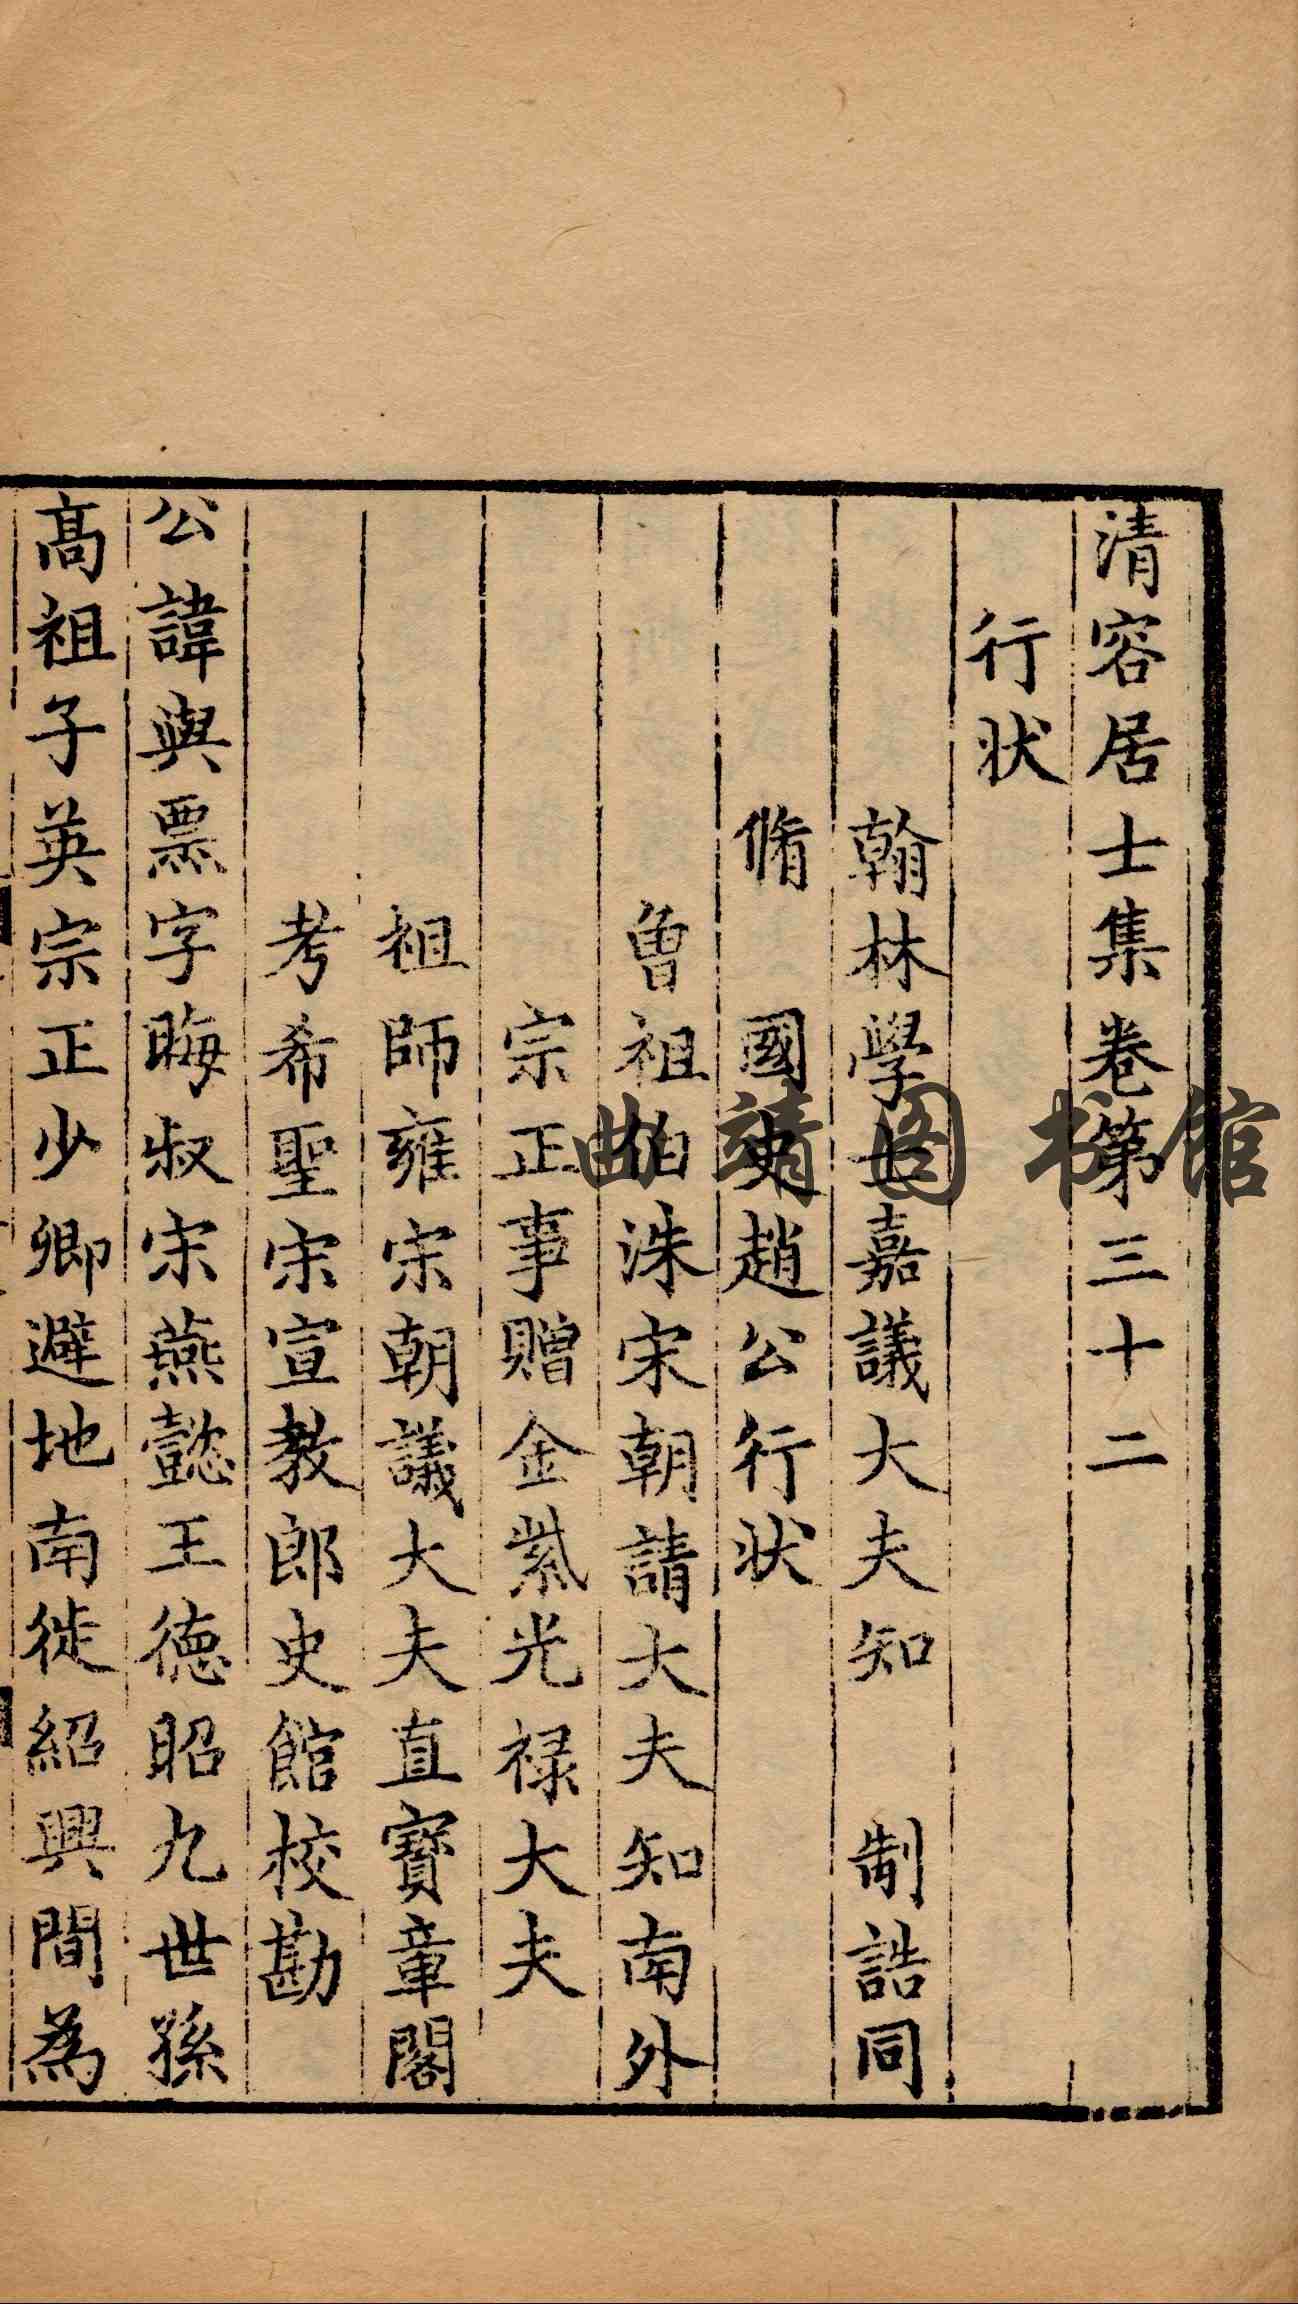 清容居士集卷第三十二
行状
翰林學士嘉議大夫知 制誥同
脩 國史趙公行状
曾祖伯洙宋朝請大夫知南外
宗正事贈金紫光禄大夫
祖師雍宋朝議大夫直寶章閣
考希聖宋宣教郎史館校勘
公諱與票字晦叔宋燕懿王德昭九世孫
髙祖子英宗正少卿避地南徙紹興間為
曲靖图书馆